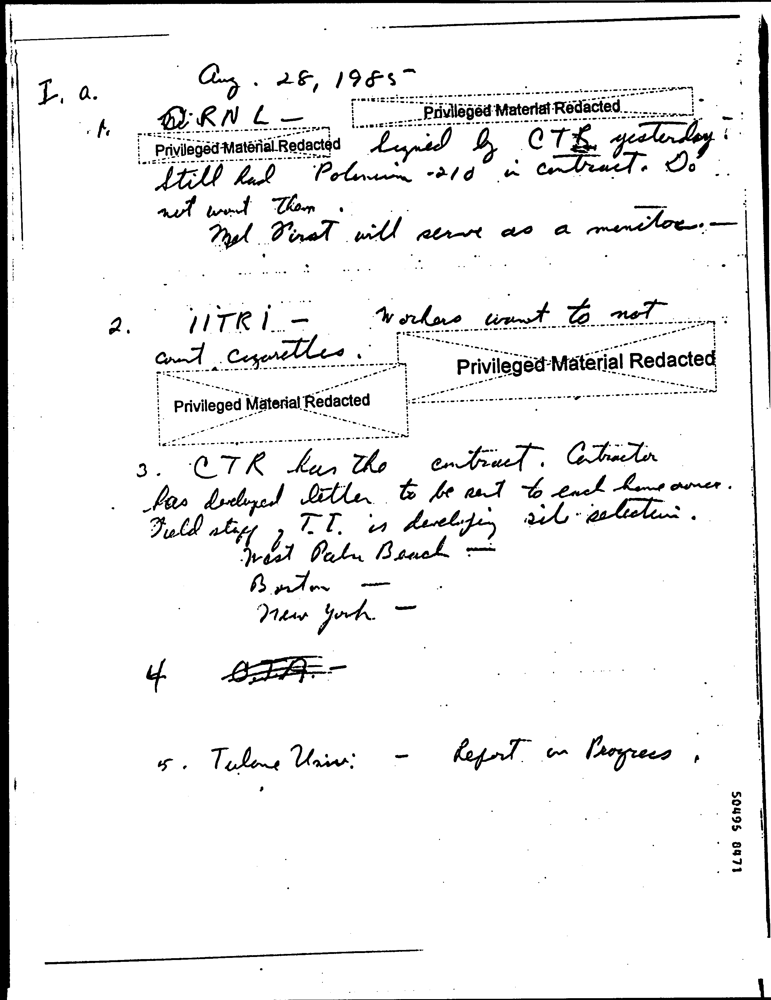 Aug. 28, 1985
I. a.
1. ORNL - Privileged Material Redacted
Privileged Material Redacted signed by CTR yesterday.
Still had Polonium-210 in contract. Do
not want them.
Mel First will serve as a monitor. -
2. IITRI - Workers want to not
count cigarettes. Privileged Material Redacted
Privileged Material Redacted
3. CTR has the contract. Contractor
has developed letter to be sent to each home owner.
Field staff, T.I. is developing site selection.
West Palm Beach -
Boston -
New York -
4
5. Tulane Univ: - Report on Progress.
50495 8471